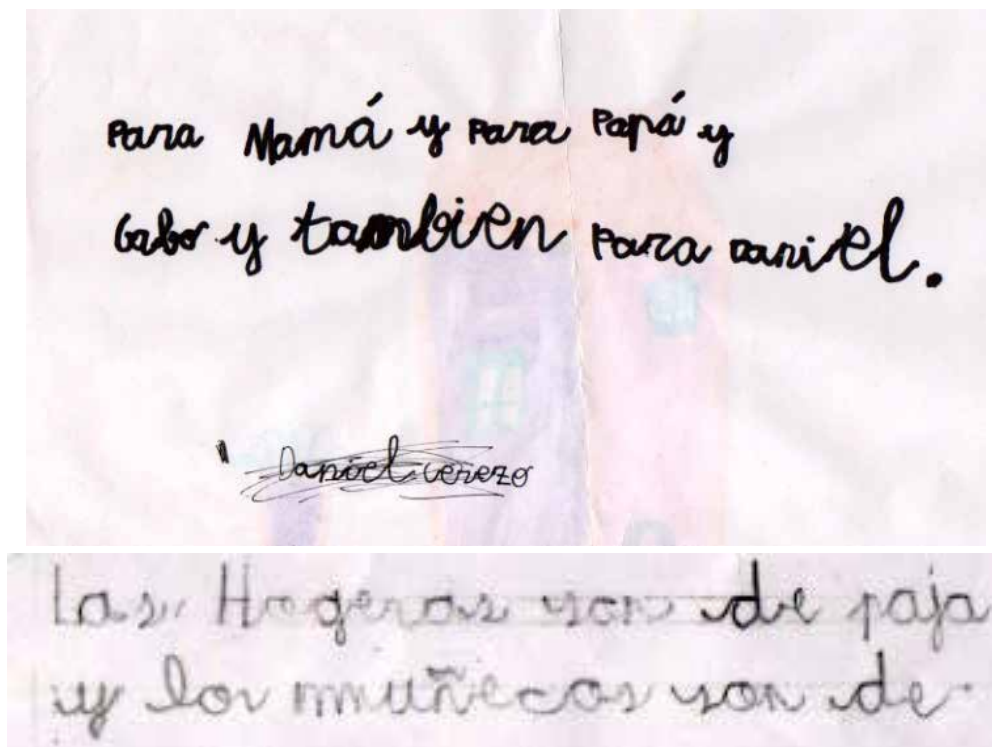 Para Mamá y Para Papá y
Gabo y tambien Para daniel.
Daniel Cerezo
Las Hogeras son de paja
y los muñecos son de